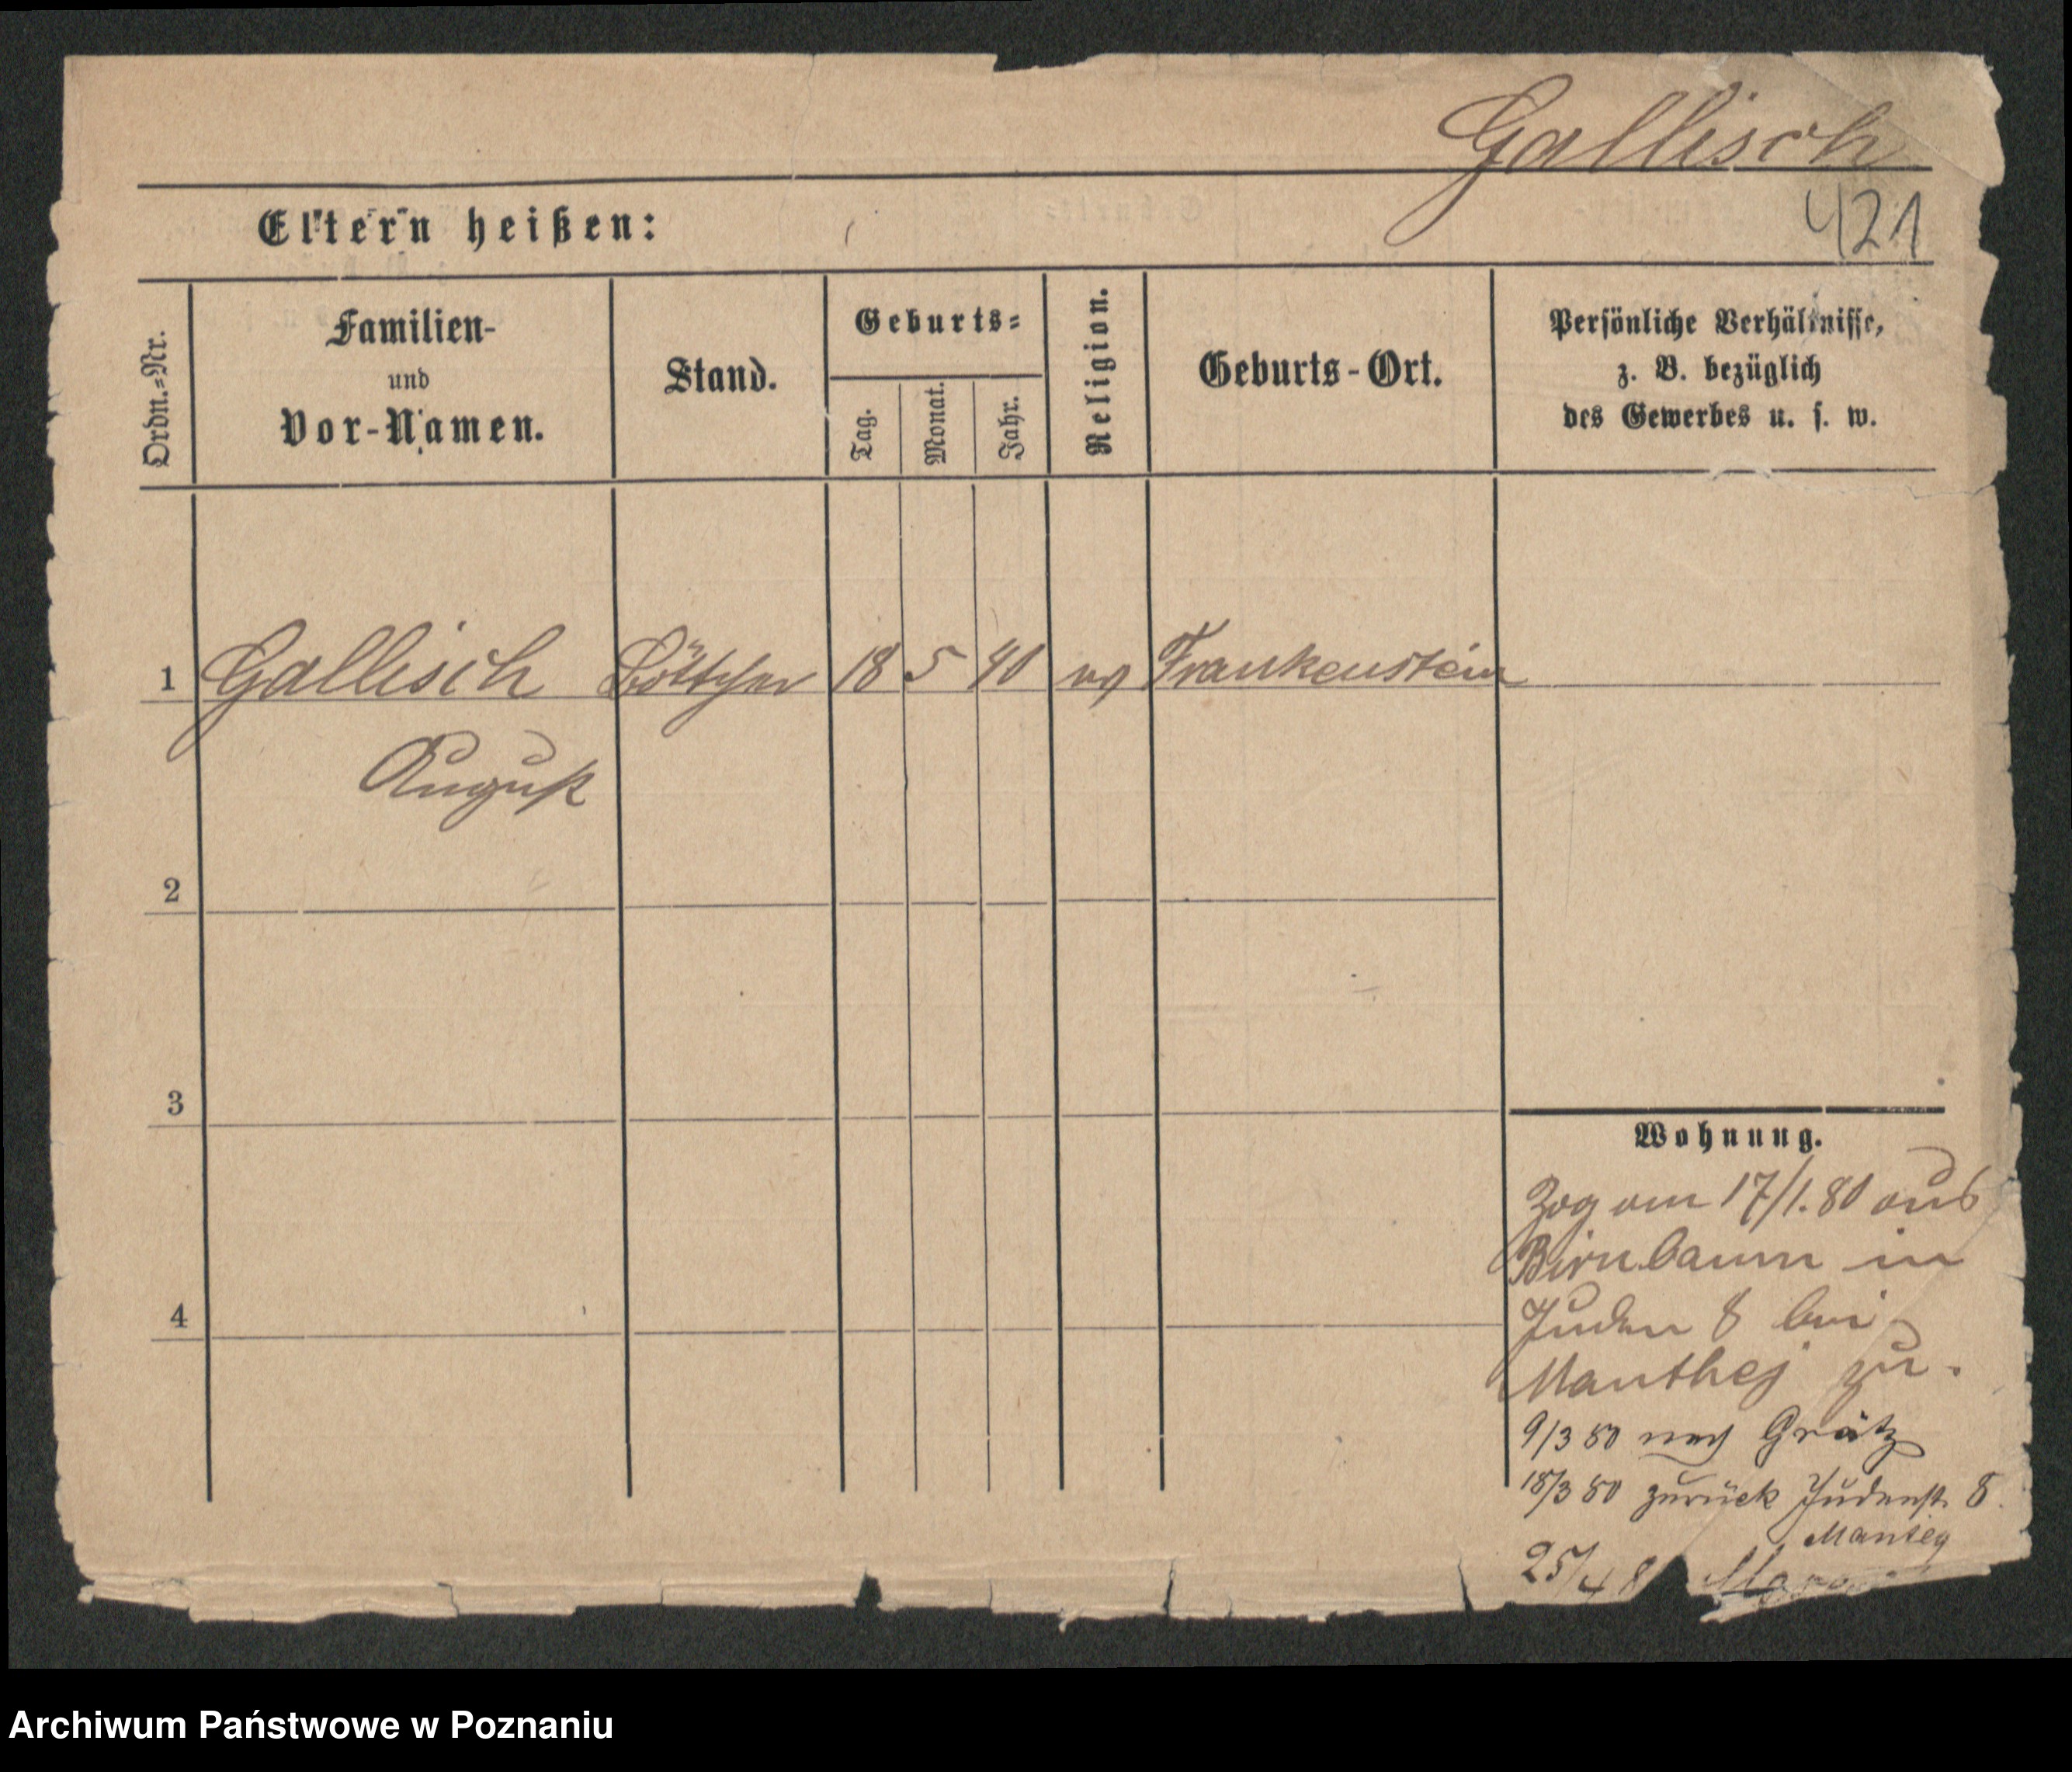 Gallisch
421
Eltern heißen:
Ordn.=Nr.
Familien-
und
Vor-Namen.
Stand.
Geburts=
Tag.
Monat.
Jahr.
Religion.
Geburts-Ort.
Persönliche Verhältnisse,
z. B. bezüglich
des Gewerbes u. s. w.
1 Gallisch Böttcher 18 5 40 ev Frankenstein
August
2
3
4
Wohnung.
Zog am 17/1.80 aus
Birnbaum in
Juden 8 bei
Manthej zu.
9/3 80 nach Grätz
18/3 80 zurück Judenstr. 8.
Mantey
25/4 8
Archiwum Państwowe w Poznaniu